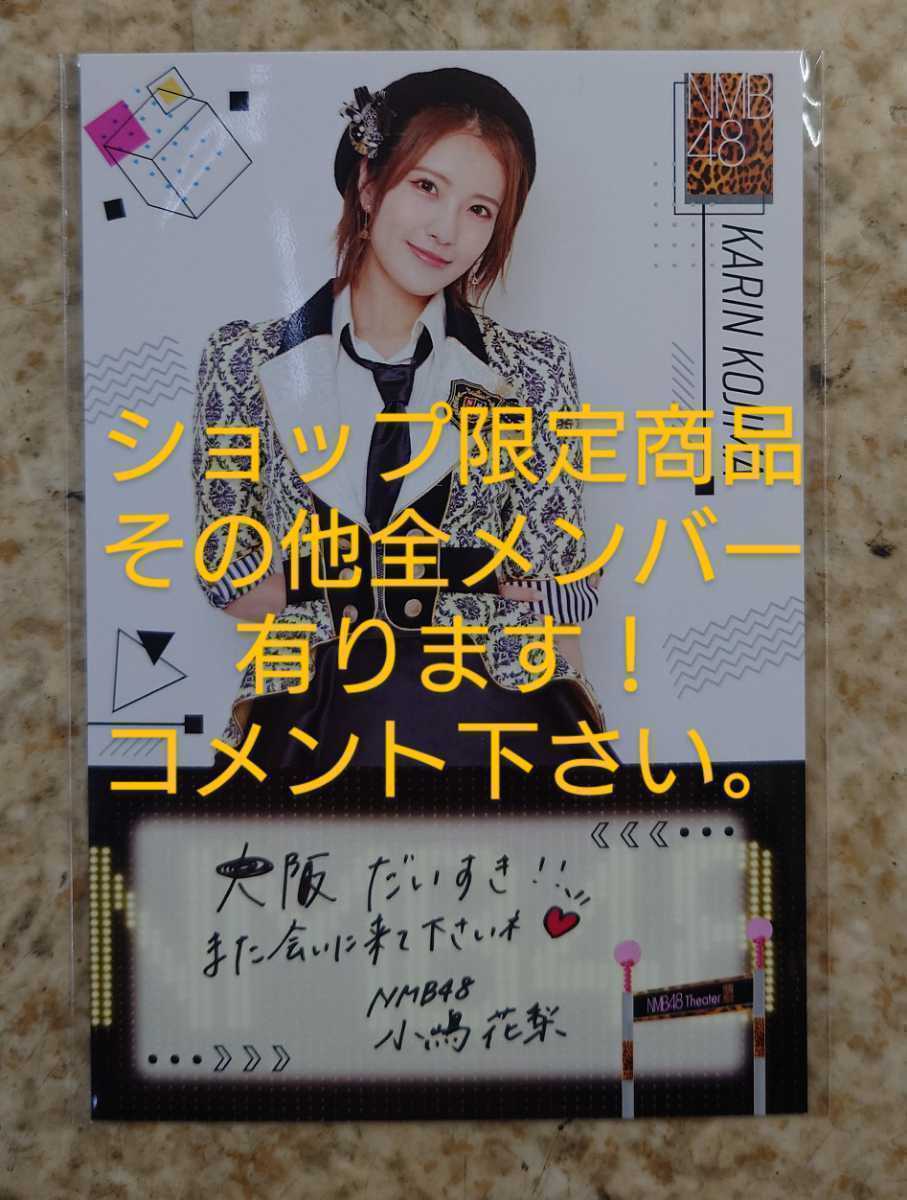 NMB
48
KARIN KOJIMA
ショップ限定商品
その他全メンバー
有ります！
コメント下さい。
大阪 だいすき!!
また会いに来て下さいネ
NMB48
小嶋花梨
NMB48 Theater